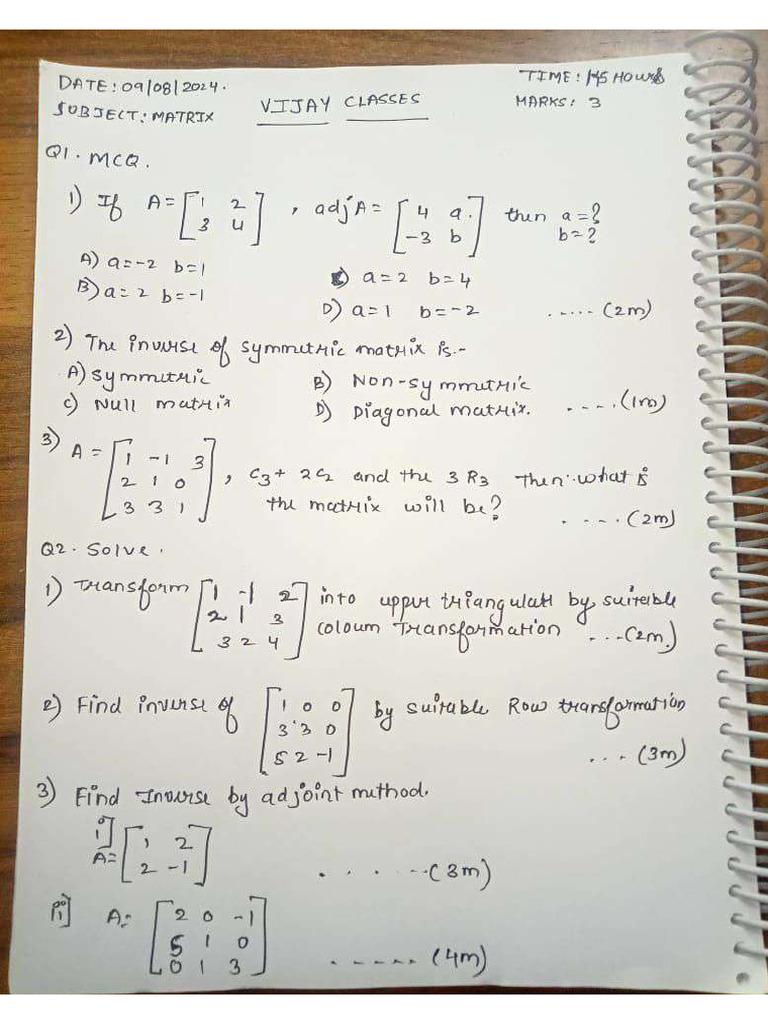 DATE: 09/08/2024. TIME: 1:45 HOURS
SUBJECT: MATRIX VIJAY CLASSES MARKS: 3
Q1. MCQ.
1) If A = [1 2 , adj A = [4 a. then a = ?
3 4] -3 b] b = ?
A) a = -2 b = 1 C) a = 2 b = 4
B) a = 2 b = -1
D) a = 1 b = -2 ..... (2m)
2) The inverse of symmetric matrix is:-
A) Symmetric B) Non-symmetric
C) Null matrix D) Diagonal matrix. .... (1m)
3) A = [1 -1 3
2 1 0 , C3 + 2C2 and the 3R3 Then what is
3 3 1] the matrix will be? .... (2m)
Q2. Solve.
1) Transform [1 -1 2 into upper triangular by suitable
2 1 3 coloum Transformation ... (2m.)
3 2 4]
2) Find inverse of [1 0 0 by suitable Row transformation
3 3 0
5 2 -1] ... (3m)
3) Find Inverse by adjoint method.
i]
A = [1 2
2 -1] ...... (3m)
ii] A = [2 0 -1
5 1 0
0 1 3] ..... (4m)